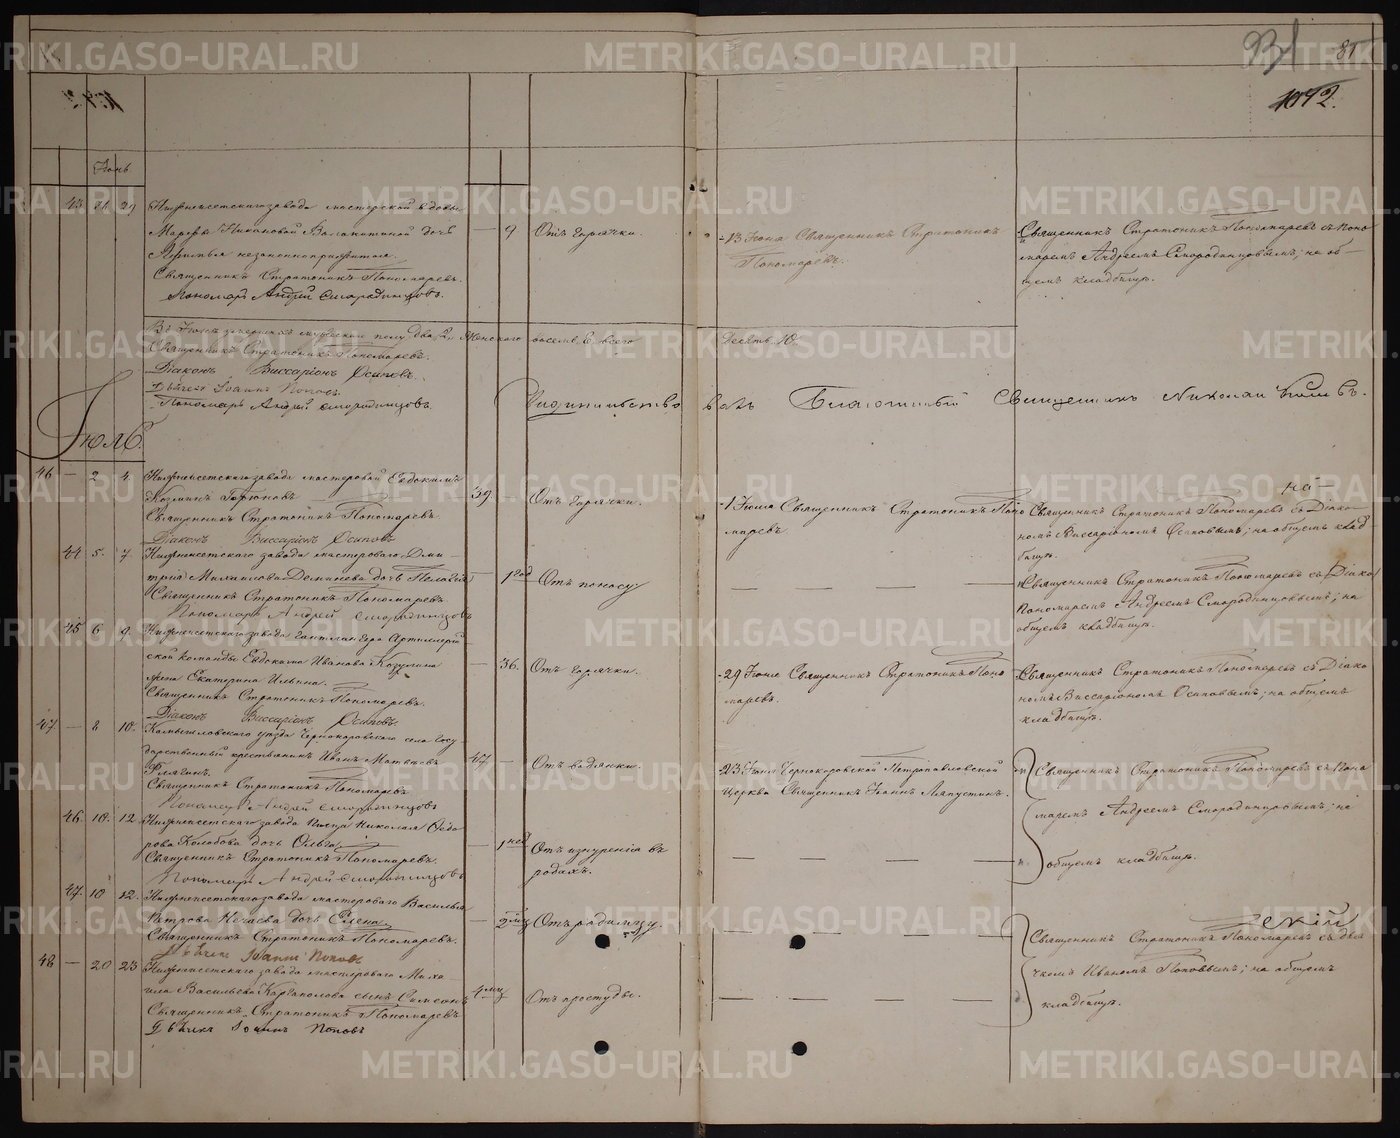 931 85
1042.
Іюнь
43 26 29 Нижнеисетскаго завода мастерской вдовы
Марфы Никоновой дочь — 9 Отъ горячки.
незаконноприжитая.
Священникъ Стратоникъ Пономаревъ.
Пономарь Андрей Смородинцовъ.
13 Іюня Священникъ Стратоникъ
Пономаревъ.
Священникъ Стратоникъ Пономаревъ съ Поно
маремъ Андреемъ Смородинцовымъ; на об-
щемъ кладбищѣ.
Въ Іюнѣ умершихъ мужескаго полу два, 2, Женскаго восемь, 8, всего Десять. 10.
Священникъ Стратоникъ Пономаревъ.
Діаконъ Виссаріонъ Осиповъ.
Дьячекъ Іоаннъ Поповъ.
Пономарь Андрей Смородинцовъ.
Свидѣтельствовалъ Благочинный Священникъ Николай
Іюль.
46 — 2 4 Нижнеисетскаго завода мастеровой Евдокимъ
Козминъ 39. — Отъ горячки.
Священникъ Стратоникъ Пономаревъ
Діаконъ Виссаріонъ Осиповъ
1 Іюля Священникъ Стратоникъ Поно
маревъ
Священникъ Стратоникъ Пономаревъ съ Діако-
номъ Виссаріономъ Осиповымъ; на общемъ клад-
бищѣ.
44 5. 7. Нижнеисетскаго завода мастероваго Дми-
трія Михайлова дочь Пелагія — 1 год Отъ поносу
Священникъ Стратоникъ Пономаревъ
Пономарь Андрей Смородинцовъ
Священникъ Стратоникъ Пономаревъ съ
Пономаремъ Андреемъ Смородинцовымъ; на
общемъ кладбищѣ.
45 6 9. Нижнеисетскаго завода Артиллерій
ской команды Евдокима Иванова — 36. Отъ горячки.
жена Екатерина Ильина.
Священникъ Стратоникъ Пономаревъ.
Діаконъ Виссаріонъ Осиповъ.
29 Іюня Священникъ Стратоникъ Поно
маревъ.
Священникъ Стратоникъ Пономаревъ съ Діако
номъ Виссаріономъ Осиповымъ; на общемъ
кладбищѣ.
47. — 8 10. Камышловскаго уѣзда Чернокоровскаго села Госу
дарственный крестьянинъ Иванъ Матвѣевъ 47 — Отъ водянки.
Священникъ Стратоникъ Пономаревъ
Пономарь Андрей Смородинцовъ
23 Іюня Чернокоровской Петропавловской
Церкви Священникъ Іоаннъ Ляпустинъ.
Священникъ Стратоникъ Пономаревъ съ Поно
маремъ Андреемъ Смородинцовымъ; на
общемъ кладбищѣ.
46. 10. 12 Нижнеисетскаго завода Николая Ѳедо
рова Колобова дочь Ольга — 1 нед Отъ изнуренія въ
Священникъ Стратоникъ Пономаревъ. родахъ.
Пономарь Андрей Смородинцовъ
47. 10 12. Нижнеисетскаго завода мастероваго Василья
Петрова Нечаева дочь Елена — 2 мц Отъ родимцу.
Священникъ Стратоникъ Пономаревъ.
Дьячекъ Іоаннъ Поповъ
Священникъ Стратоникъ Пономаревъ съ дья
чкомъ Иваномъ Поповымъ; на общемъ
кладбищѣ.
48 — 20 23 Нижнеисетскаго завода мастероваго Миха
ила Васильева Карпаполова сынъ Симеонъ 4 мц Отъ простуды.
Священникъ Стратоникъ Пономаревъ
Дьячекъ Іоаннъ Поповъ
METRIKI.GASO-URAL.RU